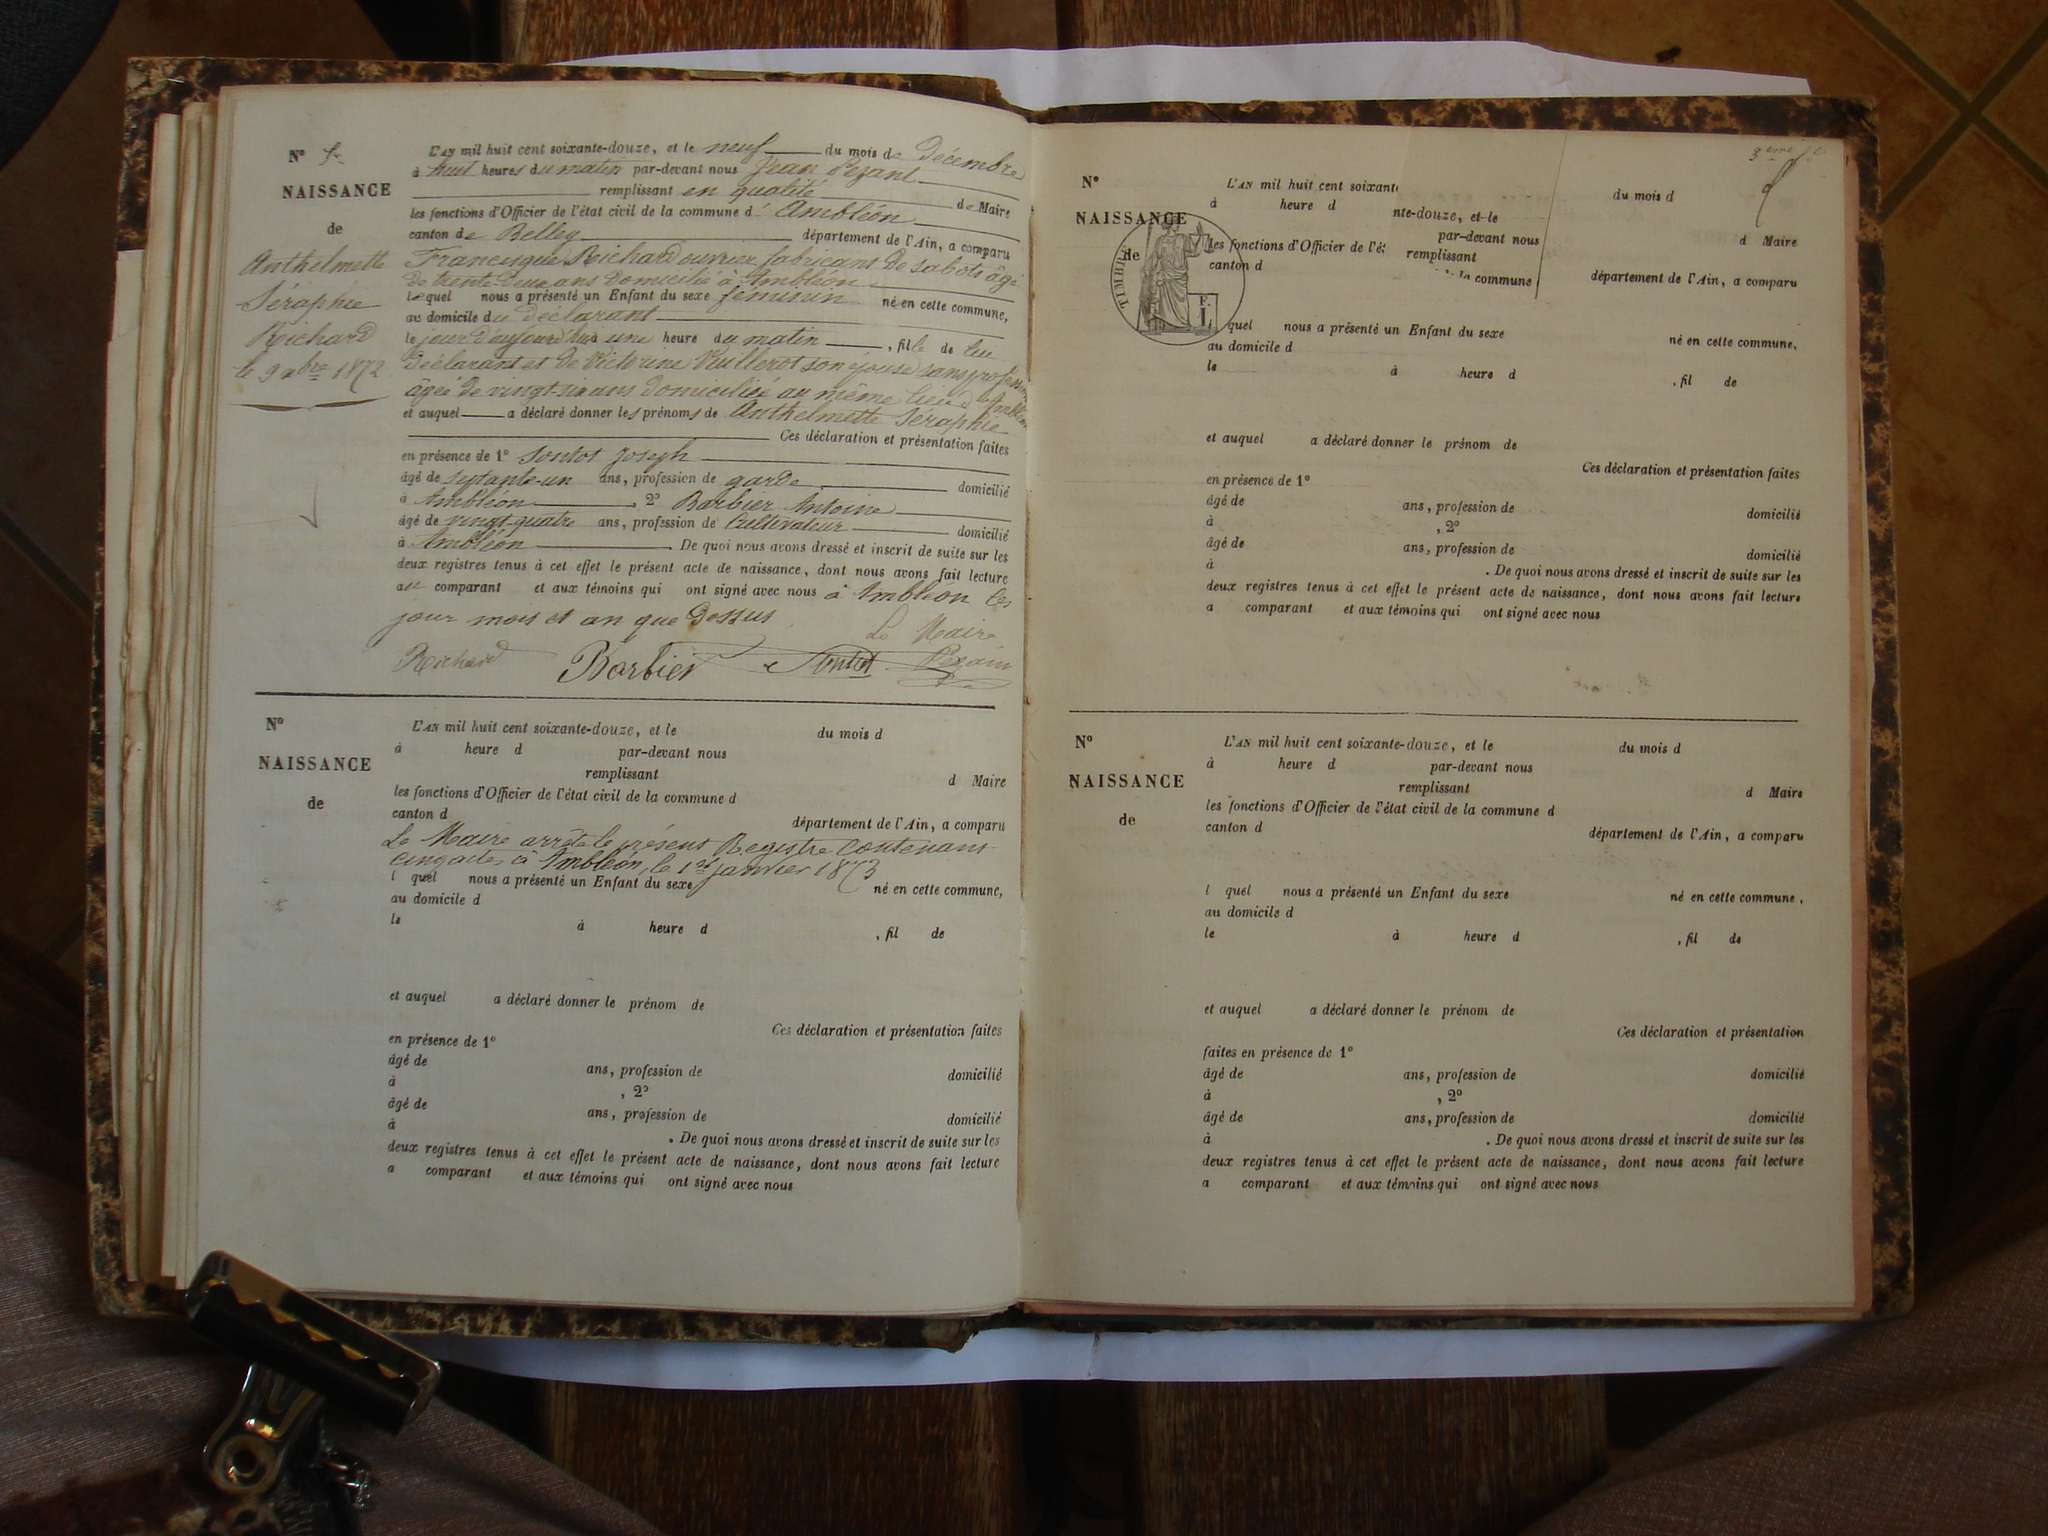 N° 5
NAISSANCE
de
Anthelmette
Séraphie
Richard
le 9 xbre 1872
L'AN mil huit cent soixante-douze, et le neuf du mois de décembre
à huit heures du matin par-devant nous Jean Pezant
remplissant en qualité de Maire
les fonctions d'Officier de l'état civil de la commune d' Ambléon
canton de Belley département de l'Ain, a comparu
Francisque Richard ouvrier fabricant de sabots âgé
de trente deux ans domicilié à Ambléon
lequel nous a présenté un Enfant du sexe féminin né en cette commune,
au domicile du déclarant
le jour d'aujourd'hui à une heure du matin , fille de lui
déclarant et de Victorine Vullerot son épouse sans profession
âgée de vingt-six ans domiciliée au même lieu d'Ambléon
et auquel a déclaré donner les prénoms de Anthelmette Séraphie
Ces déclaration et présentation faites
en présence de 1° Sontot Joseph
âgé de septante-un ans, profession de garde domicilié
à Ambléon , 2° Barbier Antoine
âgé de vingt-quatre ans, profession de Cultivateur domicilié
à Ambléon . De quoi nous avons dressé et inscrit de suite sur les
deux registres tenus à cet effet le présent acte de naissance, dont nous avons fait lecture
au comparant et aux témoins qui ont signé avec nous à Ambléon les
jour mois et an que dessus
Le Maire
Richard Barbier Sontot
N°
NAISSANCE
de
L'AN mil huit cent soixante-douze, et le du mois d
à heure d par-devant nous
remplissant d Maire
les fonctions d'Officier de l'état civil de la commune d
canton d département de l'Ain, a comparu
Le Maire arrête le présent Registre contenant
cinq actes, à Ambléon, le 1er janvier 1873
l quel nous a présenté un Enfant du sexe né en cette commune,
au domicile d
le à heure d , fil de
et auquel a déclaré donner le prénom de
Ces déclaration et présentation faites
en présence de 1°
âgé de ans, profession de domicilié
à , 2°
âgé de ans, profession de domicilié
à . De quoi nous avons dressé et inscrit de suite sur les
deux registres tenus à cet effet le présent acte de naissance, dont nous avons fait lecture
a comparant et aux témoins qui ont signé avec nous
N°
NAISSANCE
de
TIMBRE
L'AN mil huit cent soixant du mois d
à heure d nte-douze, et le
par-devant nous d Maire
les fonctions d'Officier de l'é remplissant
canton d la commune département de l'Ain, a comparu
l quel nous a présenté un Enfant du sexe né en cette commune,
au domicile d
le à heure d , fil de
et auquel a déclaré donner le prénom de
Ces déclaration et présentation faites
en présence de 1°
âgé de ans, profession de domicilié
à , 2°
âgé de ans, profession de domicilié
à . De quoi nous avons dressé et inscrit de suite sur les
deux registres tenus à cet effet le présent acte de naissance, dont nous avons fait lecture
a comparant et aux témoins qui ont signé avec nous
N°
NAISSANCE
de
L'AN mil huit cent soixante-douze, et le du mois d
à heure d par-devant nous
remplissant d Maire
les fonctions d'Officier de l'état civil de la commune d
canton d département de l'Ain, a comparu
l quel nous a présenté un Enfant du sexe né en cette commune,
au domicile d
le à heure d , fil de
et auquel a déclaré donner le prénom de
Ces déclaration et présentation
faites en présence de 1°
âgé de ans, profession de domicilié
à , 2°
âgé de ans, profession de domicilié
à . De quoi nous avons dressé et inscrit de suite sur les
deux registres tenus à cet effet le présent acte de naissance, dont nous avons fait lecture
a comparant et aux témoins qui ont signé avec nous